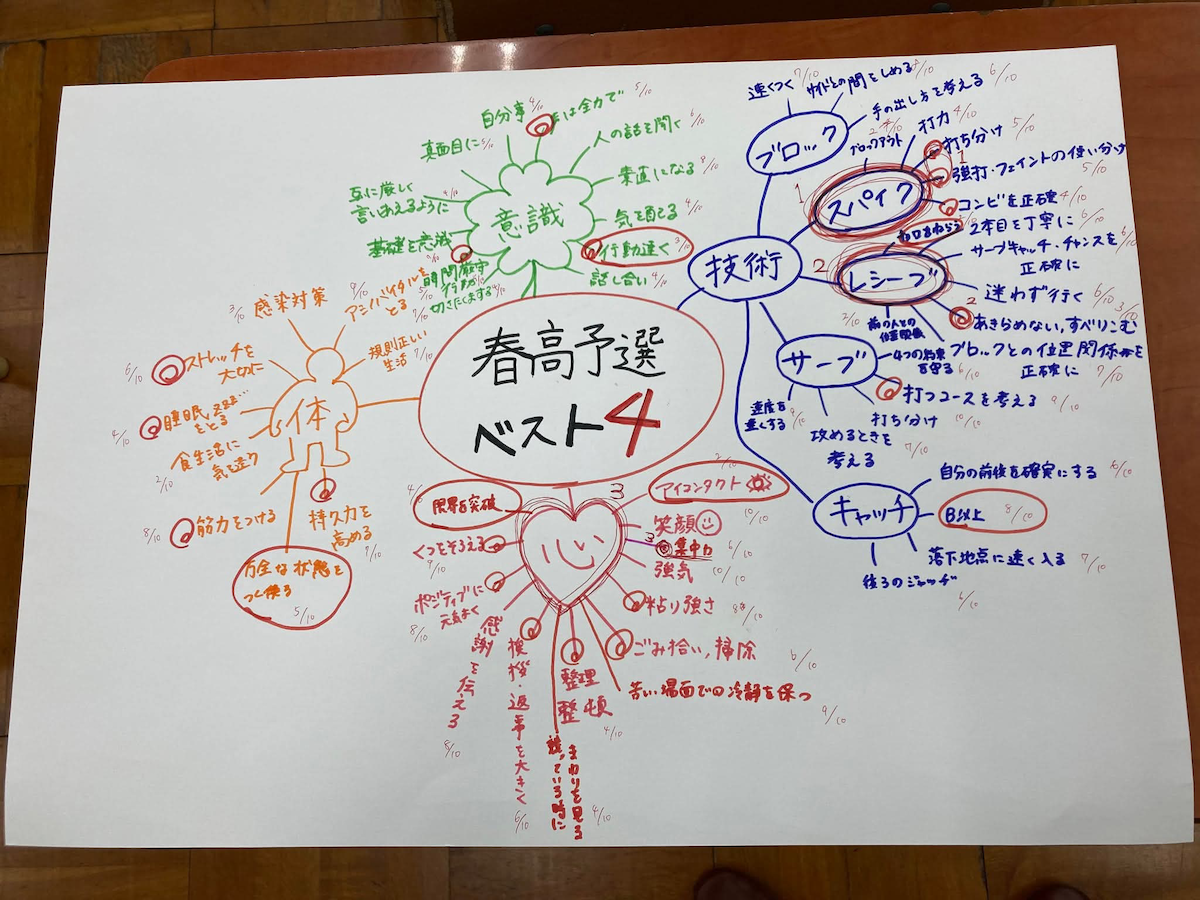 春高予選
ベスト4
意識
自分事
4/10
は全力で
5/10
真面目に
人の話を聞く
6/10
素直になる
8/10
気を配る
4/10
行動速く
3/10
話し合い
4/10
互に厳しく
言いあえるように
基礎を意識
時間厳守
技術
ブロック
速くつく
7/10
サイドとの間をしめる
8/10
手の出し方を考える
6/10
スパイク
1
ブロックアウト
打力
4/10
打ち分け
5/10
1
強打・フェイントの使い分け
5/10
コンビを正確
4/10
レシーブ
2
2本目を丁寧に
6/10
サーブキャッチ・チャンスを
正確に
6/10
迷わず行く
6/10
あきらめない,すべりこむ
3/10
2
ブロックとの位置関係を
正確に
7/10
前の人との
位置関係
2/10
サーブ
4つの約束
を守る
6/10
打つコースを考える
9/10
打ち分け
10/10
攻めるときを
考える
7/10
速度を
重くする
9/10
キャッチ
自分の前後を確実にする
6/10
B以上
8/10
落下地点に速く入る
7/10
後ろのジャッジ
6/10
体
感染対策
3/10
アミノバイタルを
とる
9/10
規則正しい
生活
7/10
ストレッチを
大切に
6/10
睡眠
をとる
食生活に
気を遣う
2/10
筋力をつける
8/10
持久力を
高める
9/10
万全な状態を
つく
5/10
心
3
限界を突破
4/10
アイコンタクト
2/10
笑顔
10/10
3
集中力
6/10
強気
10/10
粘り強さ
ごみ拾い,掃除
6/10
苦い場面での冷静を保つ
9/10
まわりを見る
4/10
整理
整頓
4/10
挨拶・返事を大きく
6/10
感謝を伝える
8/10
ポジティブに
元気よく
8/10
くつをそろえる
9/10